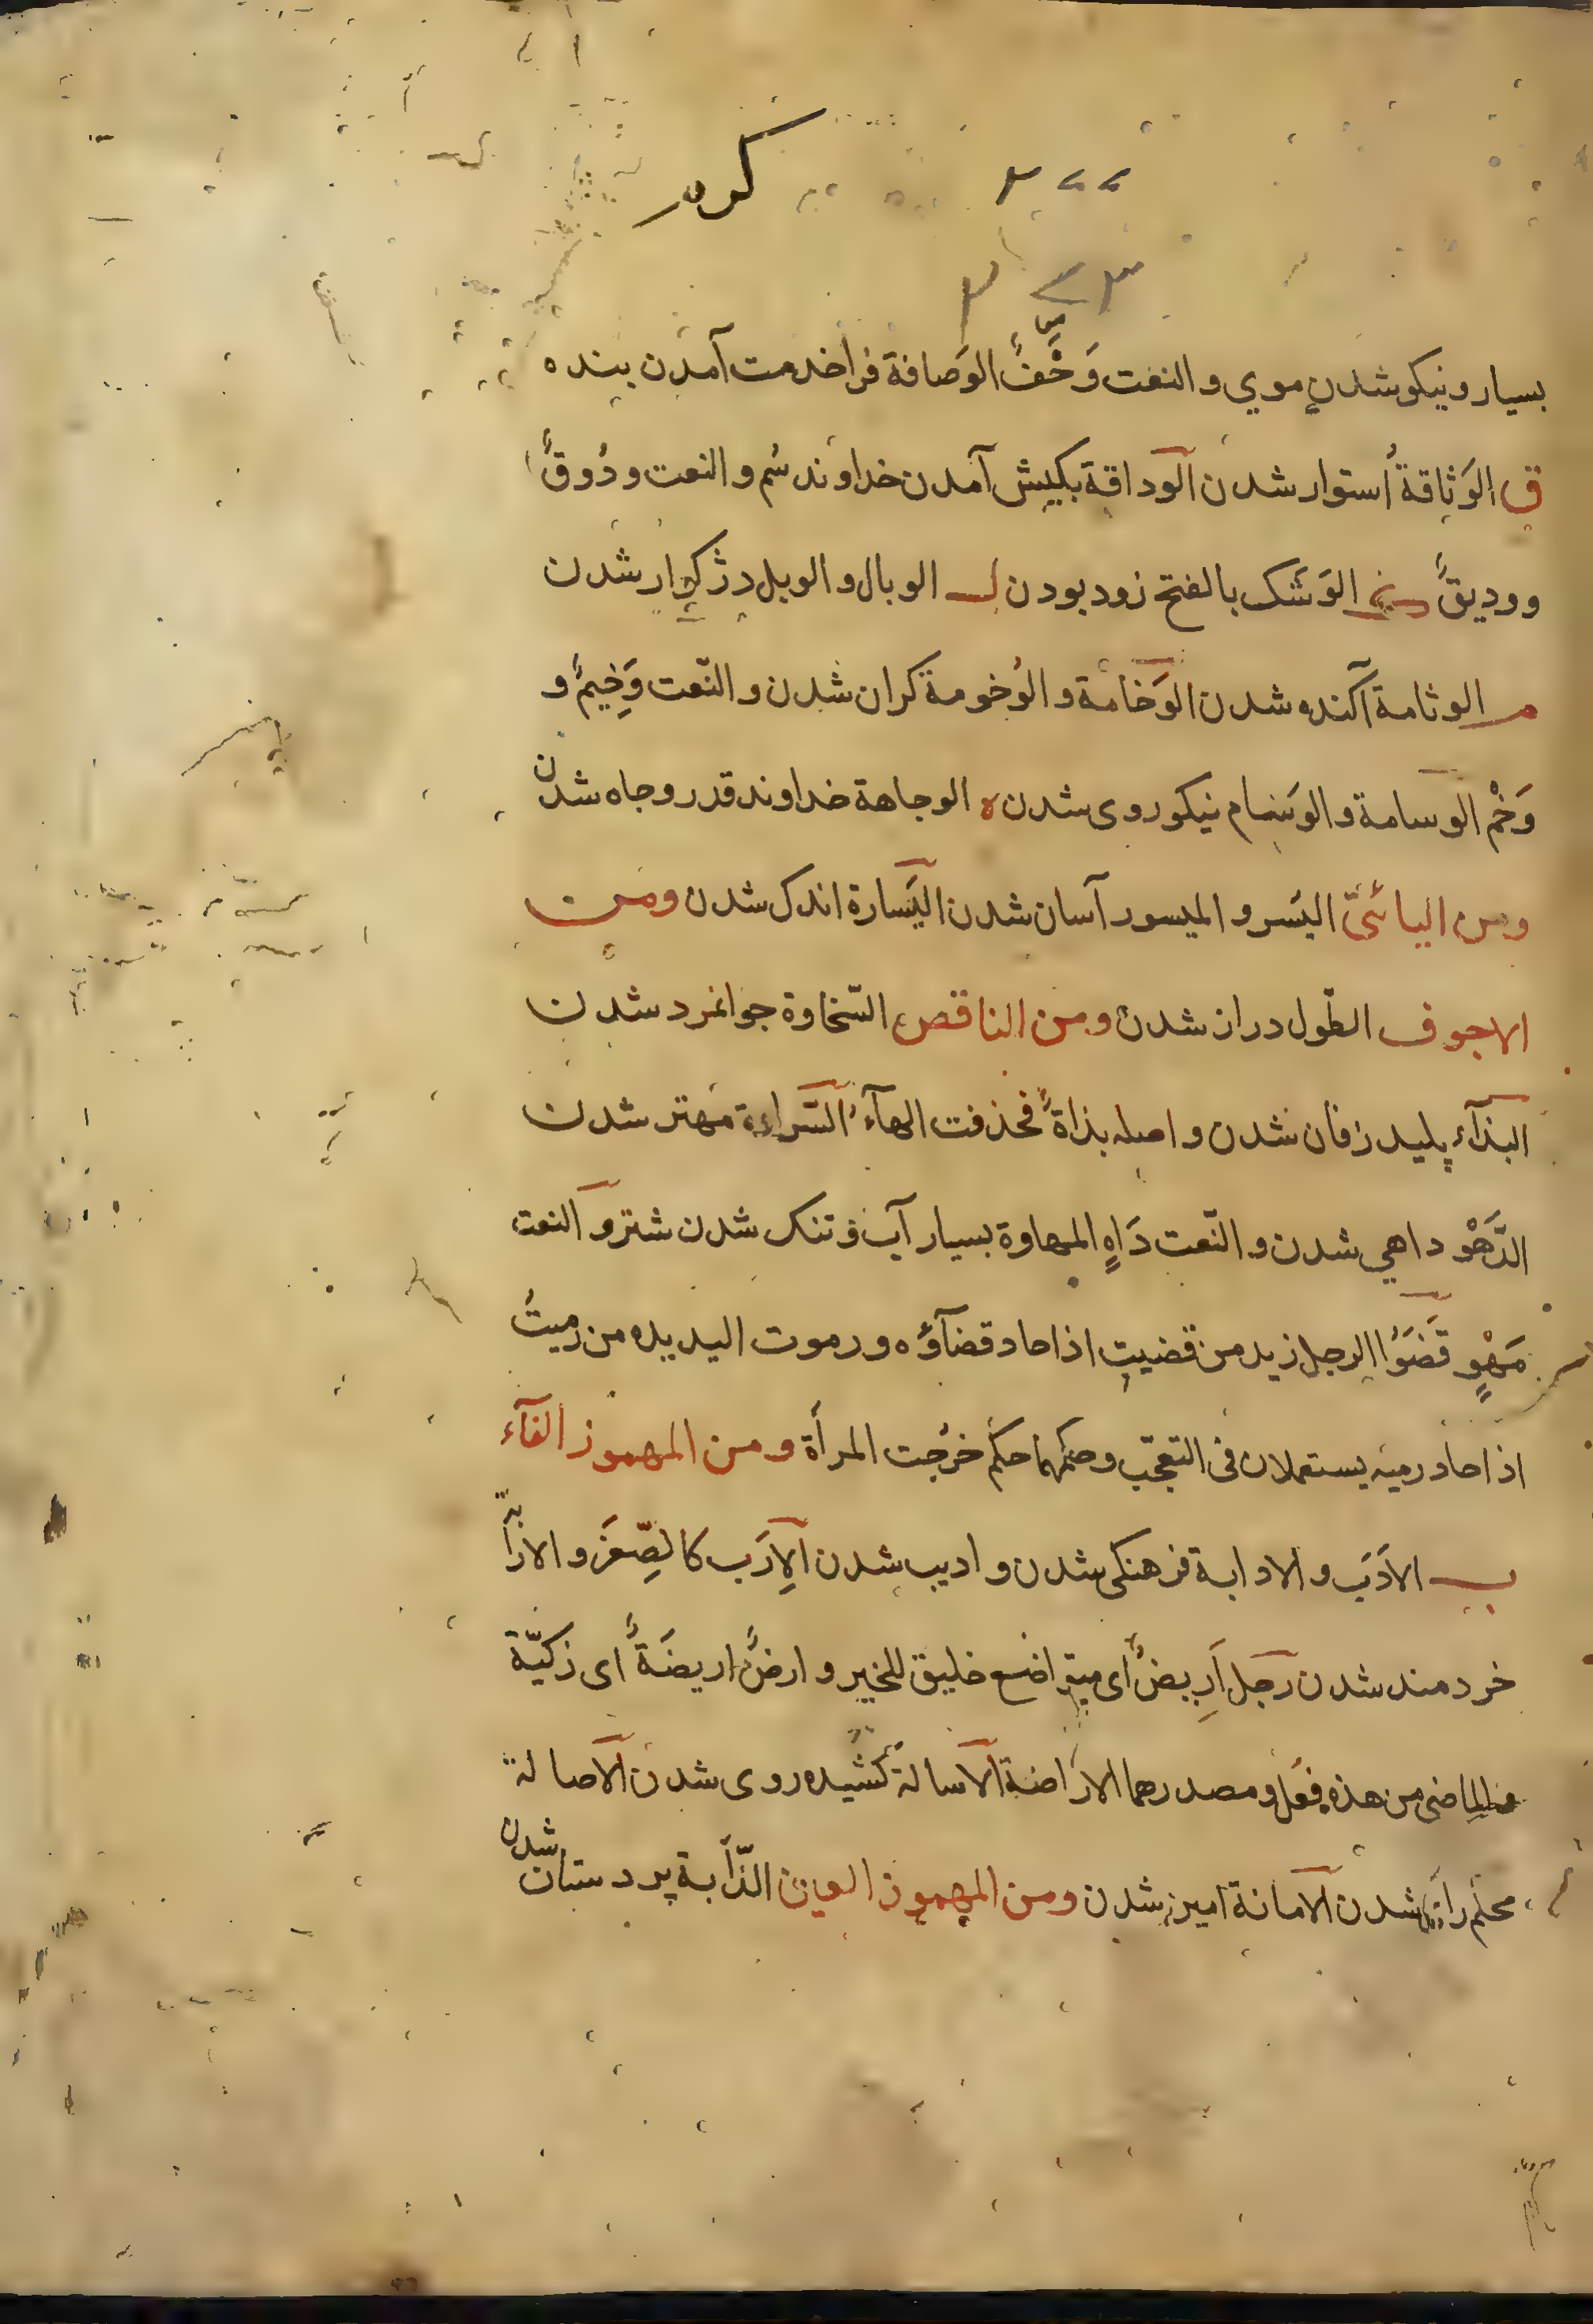 كرم
بسيار و نيكو شدن موي و النعت وَحْفٌ الوَصافة فرا خدمت آمدن بنده
ق الوَثاقةُ اُستوار شدن الوداقة بكيش آمدن خداوند سُم و النعت ودُوقٌ
ووديقٌ الوَشَك بالفتح زود بودن ل الوبال و الوبل دژكوار شدن
م الوثامة آكنده شدن الوَخامَة و الوُخومة كران شدن و النّعت وَخِيمٌ و
وَخْم الوسامة و الوسَام نيكو روى شدن ه الوجاهة خداوند قدر و جاه شدن
ومن اليائىّ اليُسر و الميسور آسان شدن اليَسارة اندك شدن ومن
الاجوف الطّول دراز شدن ومن الناقص السّخاوة جوانمرد شدن
البذآء پليد زفان شدن و اصله بذاةً فحذفت الهآءُ السّراوة مهتر شدن
الدَّهْو داهي شدن و النّعت دَاهٍ المهاوة بسيار آب و تنك شدن شير و النعت
مَهْوٍ قَضَوُا الرجل زيد من قضيت اذا جاد قضآؤه و رموت اليد يده من رميتُ
اذا جاد رميه يستعملان فى التعجّب و حكمهما حكم خرُجت المرأة ومن المهموز الفآء
ب الاَدَب و الادابة فرهنكى شدن و اديب شدن الاِرَب كالصِّغَر و الارابة
خردمند شدن رجل اَرِيضٌ اى متواضع خليق للخير و ارضٌ اريضَةٌ اى زكيّة
والماضى من هذه فعُل و مصدرهما الاراضة الاسالة كشيده روى شدن الاصالة
محكم راى شدن الامانة امين شدن ومن المهموز العين الذّآبة پر دستان شدن